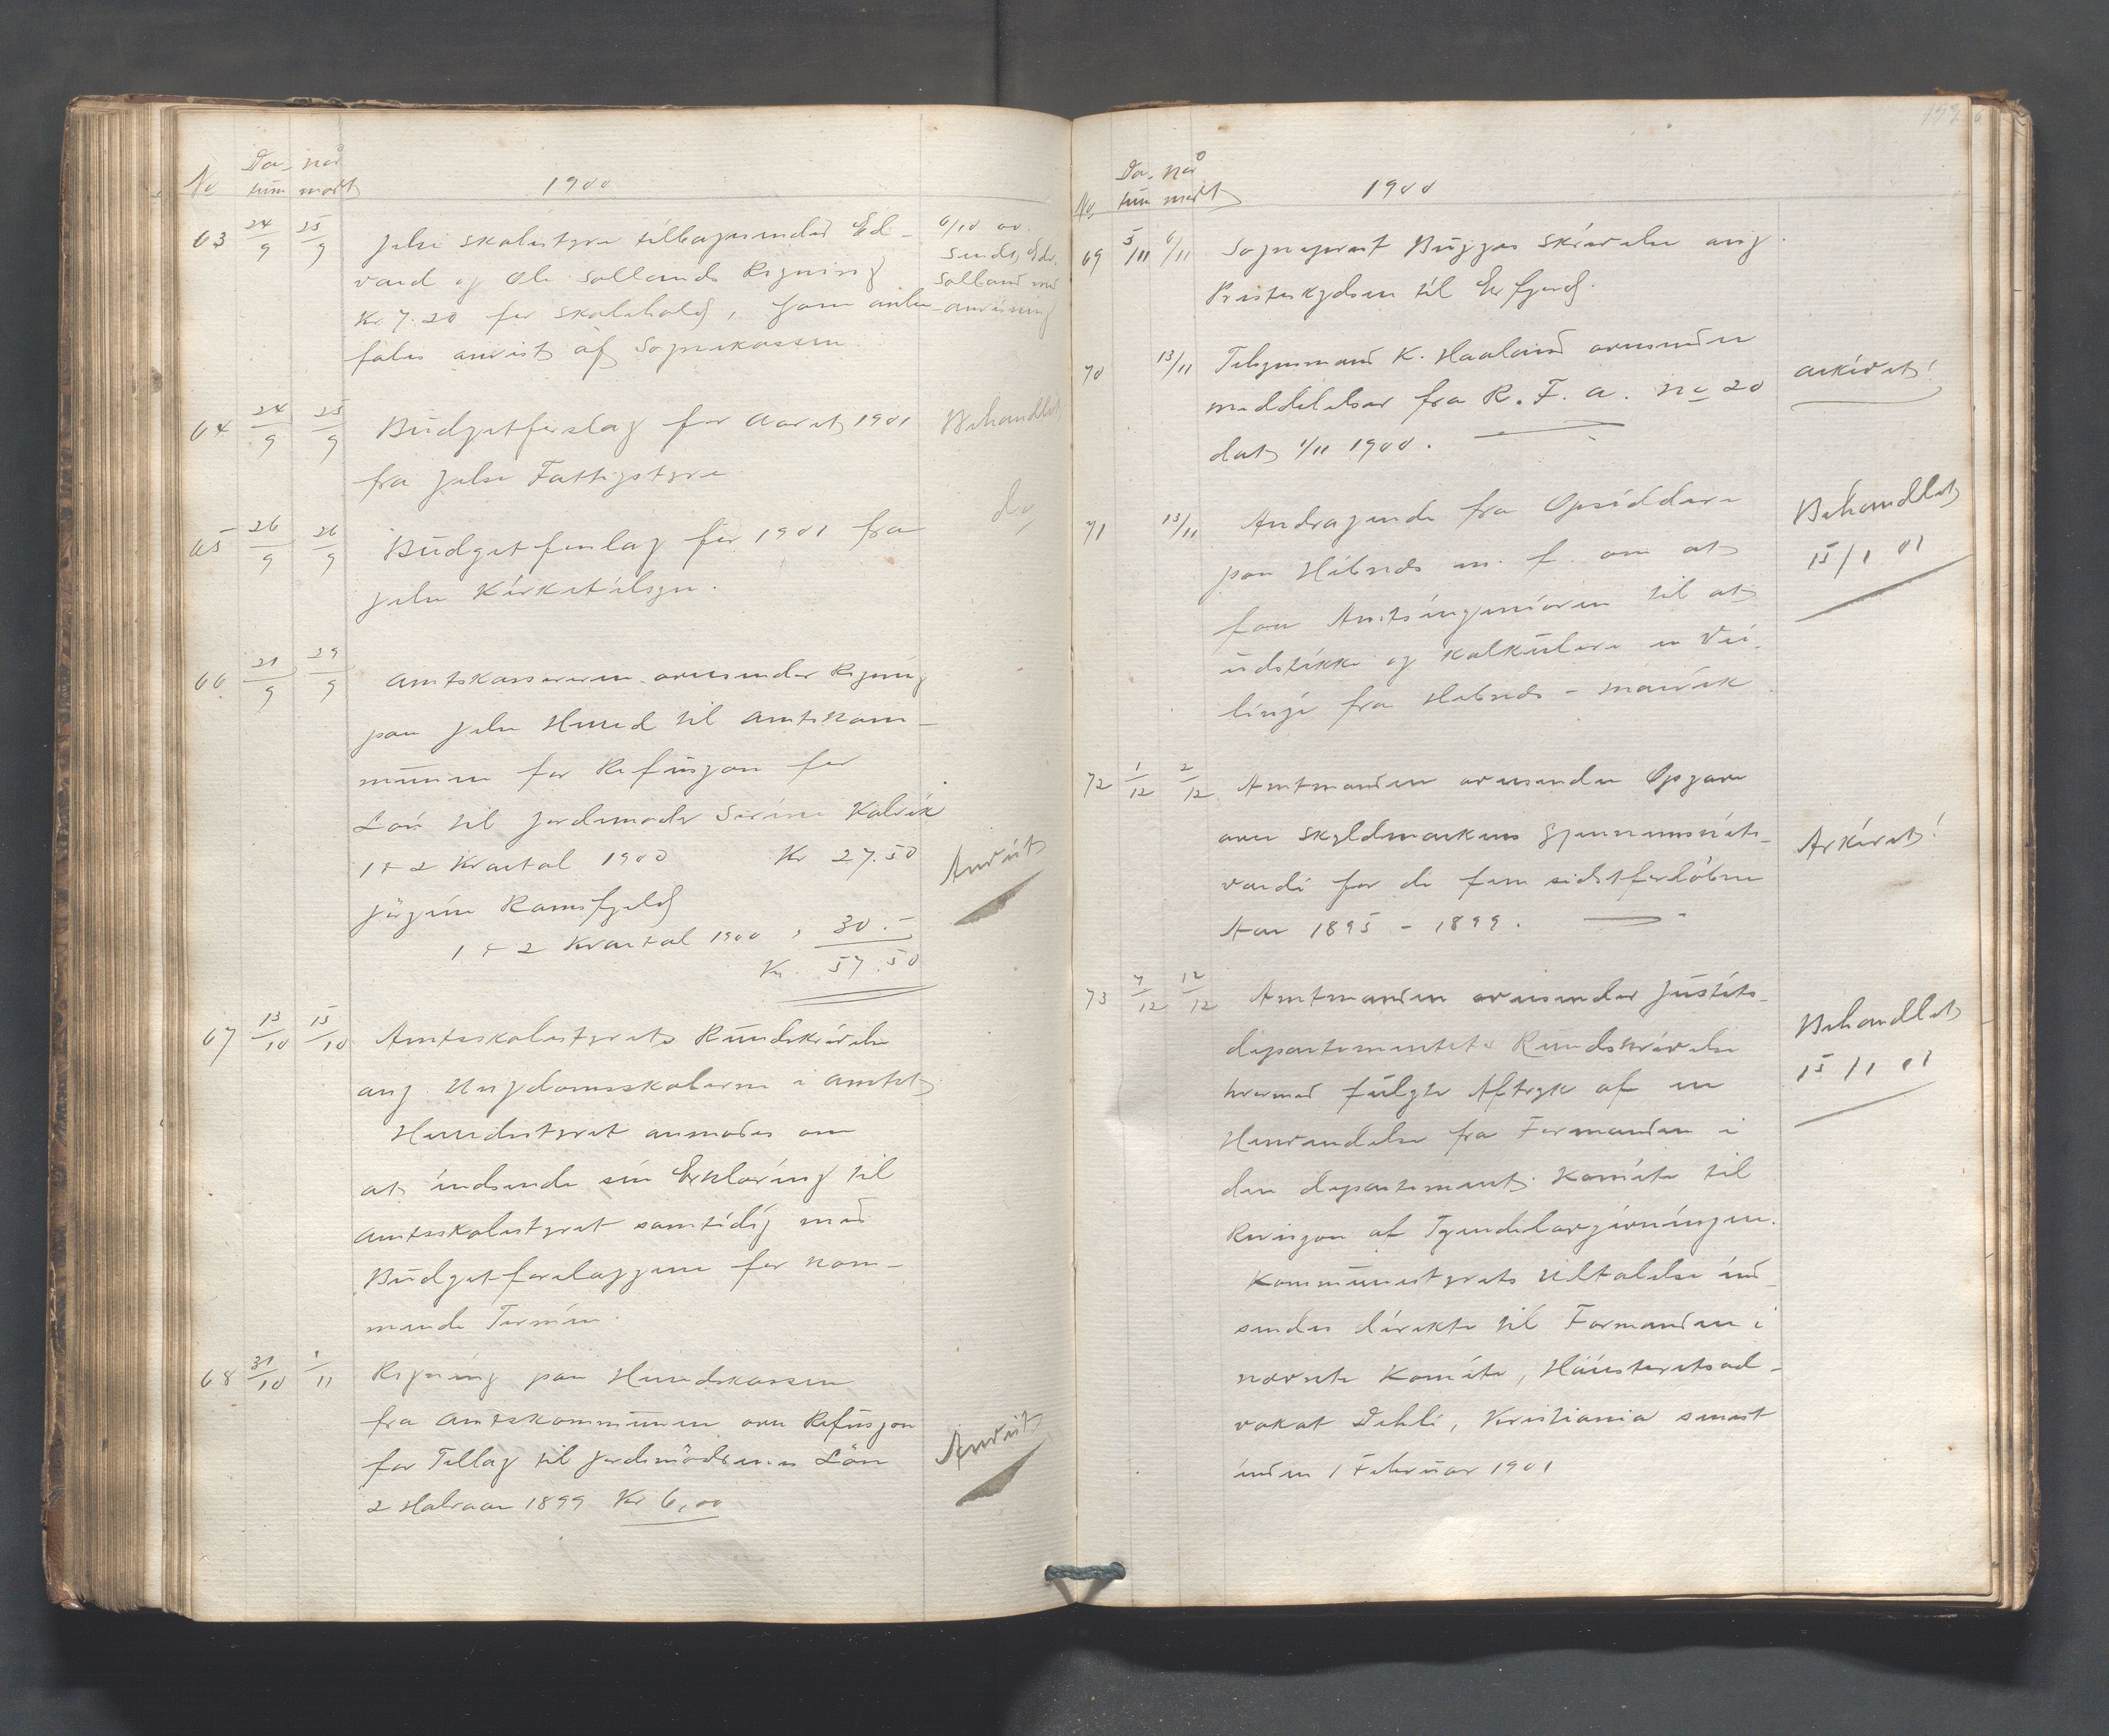 No Da- naar
tum modt 1900
63 24/9 25/9 Jelse skolestyre tilbagesender Ed- 6/10 ov.
vard og Ole Sollands Regning sendt Edv.
Kr 7.20 for skolehold, som anbe- Solland med
fales anvist af Sognekassen. anvisning
64 24/9 25/9 Budgetforslag for Aaret 1901 Behandlet
fra Jelse Fattigstyre
65 26/9 26/9 Budgetforslag for 1901 fra do
Jelse Kirketilsyn.
66. 29/9 Amtskassereren oversender Regning
paa Jelse Herred til Amtskom-
munen for Refusjon for
Løn til Jordemoder Serine Kalvik
1 + 2 Kvartal 1900 Kr 27.50 Anvist
Jørgine Ramsfjeld
1 + 2 Kvartal 1900 " 30.-
Kr. 57.50
67 13/10 15/10 Amtsskolestyrets Rundskrivelse
ang. Ungdomsskolerne i Amtet
Herredsstyret anmodes om
at indsende sin Erklæring til
Amtsskolestyret samtidig med
Budgetforslaggene for kom-
mende Termin.
68 31/10 1/11 Regning paa Herredskassen
fra Amtskommunen over Refusjon
for Tillæg til Jordemødrenes Løn Anvist
2 Halvaar 1899 Kr 6,00
No Da- naar
tum modt 1900
69 5/11 6/11 Sogneprest Bugges skrivelse ang.
Presteskydsen til Erfjord.
70 13/11 Tilsynsmand K. Haaland oversender
meddelelser fra R. F. A. No 20 arkivet!
dat 1/11 1900.
71 13/11 Andragende fra Opsiddere Behandlet
paa Hebnes m. f. om at 15/1 01
faa Amtsingeniøren til at
udstikke og kalkulere en Vei-
linje fra Hebnes -
72 1/12 2/12 Amtmanden oversender Opgave
over skyldmarkens Gjennemsnits- Arkivet!
værdi for de fem sidstforløbne
Aar 1895 - 1899.
73 7/12 12/12 Amtmanden oversender Justits-
departementets Rundskrivelse Behandlet
hvormed fulgte Aftryk af en 15/1 01
Henvendelse fra Formanden i
den departement. Komite til
Revisjon af Tyendelovgivningen.
Kommunestyrets Utalelse ind-
sendes direkte til Formanden i
nævnte Komite, Høiesteretsad-
vokat Dehli, Kristiania senest
inden 1 Februar 1901